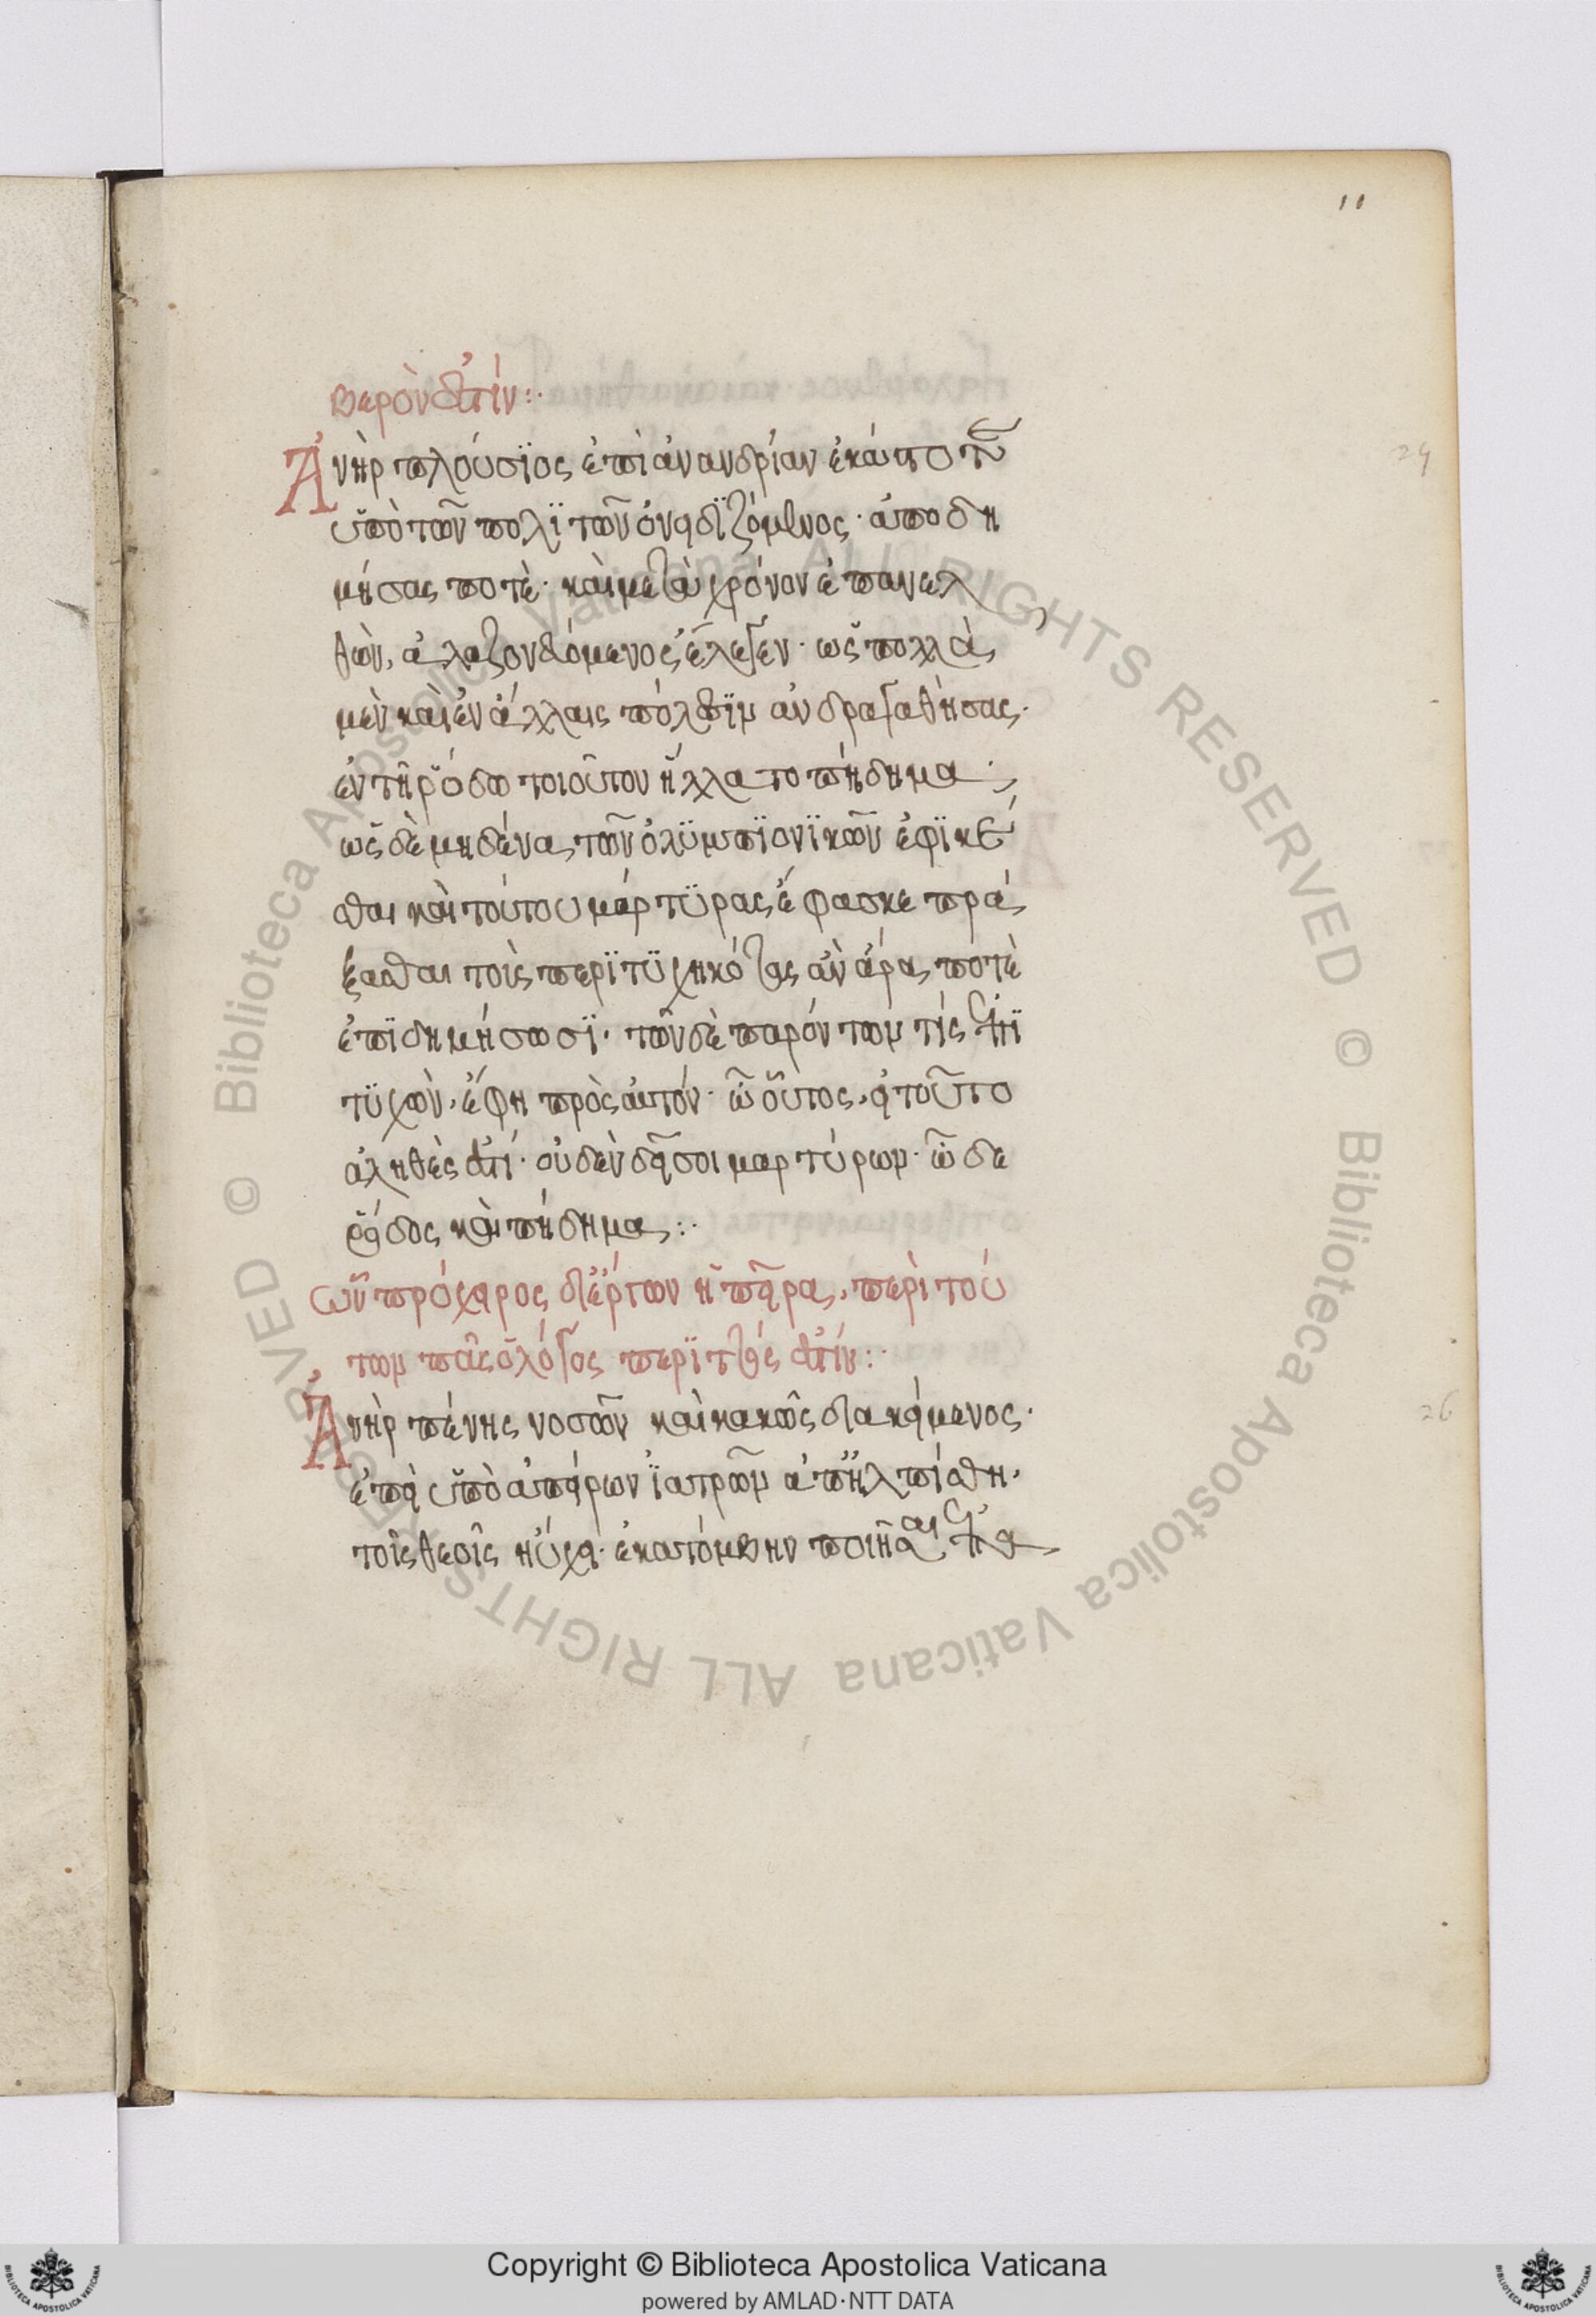 11
βερὸν ἐστίν:·
Ἀνὴρ πλούσϊος ἐπὶ ἀνανδρίαν ἑκάστο τῶν
ὑπὸ τῶν πολϊτῶν ὀνειδϊζόμενος· ἀποδη
μήσας ποτὲ· καὶ μετὰ χρόνον ἐπανελ
θὼν, ἀλαζονευόμενος ἔλεγεν· ὡς πολλὰ
μὲν καὶ ἐν ἄλλαις πόλεσϊν ἀνδραγαθήσας·
ἐν τῆ ῥόδω τοιοῦτον ἥλλατο πήδημα·
ὡς δὲ μηδένα τῶν ὀλϋμπϊονϊκῶν ἐφϊκέ
σθαι καὶ τούτου μάρτϋρας ἔφασκε πρά
ξασθαι τοὺς περϊτϋχηκότας ἀν ἄρα ποτὲ
ἐπϊδημήσωσϊ· τῶν δὲ παρόντων τίς ἐπϊ
τϋχὼν, ἔφη πρὸς αὐτόν· ὦ οὗτος, εἰ τοῦτο
ἀληθές ἐστί· οὐδὲν δεῖ σοι μαρτύρων· ὧδε
ῥόδος καὶ πήδημα:·
ὧν πρόχειρος δι ἔργων ἡ πεῖρα, περὶ τού
των πᾶς ὁ λόγος περϊττός ἐστίν:·
Ἀνὴρ πένης νοσῶν καὶ κακῶς διακείμενος·
ἐπεὶ ὑπὸ ἀπείρων ϊατρῶν ἀπηλπίσθη·
τοῖς θεοῖς ηὔχει· ἑκατόμβην ποιῆσαι
24
26
Copyright © Biblioteca Apostolica Vaticana
powered by AMLAD·NTT DATA
© Biblioteca Apostolica Vaticana ALL RIGHTS RESERVED
© Biblioteca Apostolica Vaticana ALL RIGHTS RESERVED